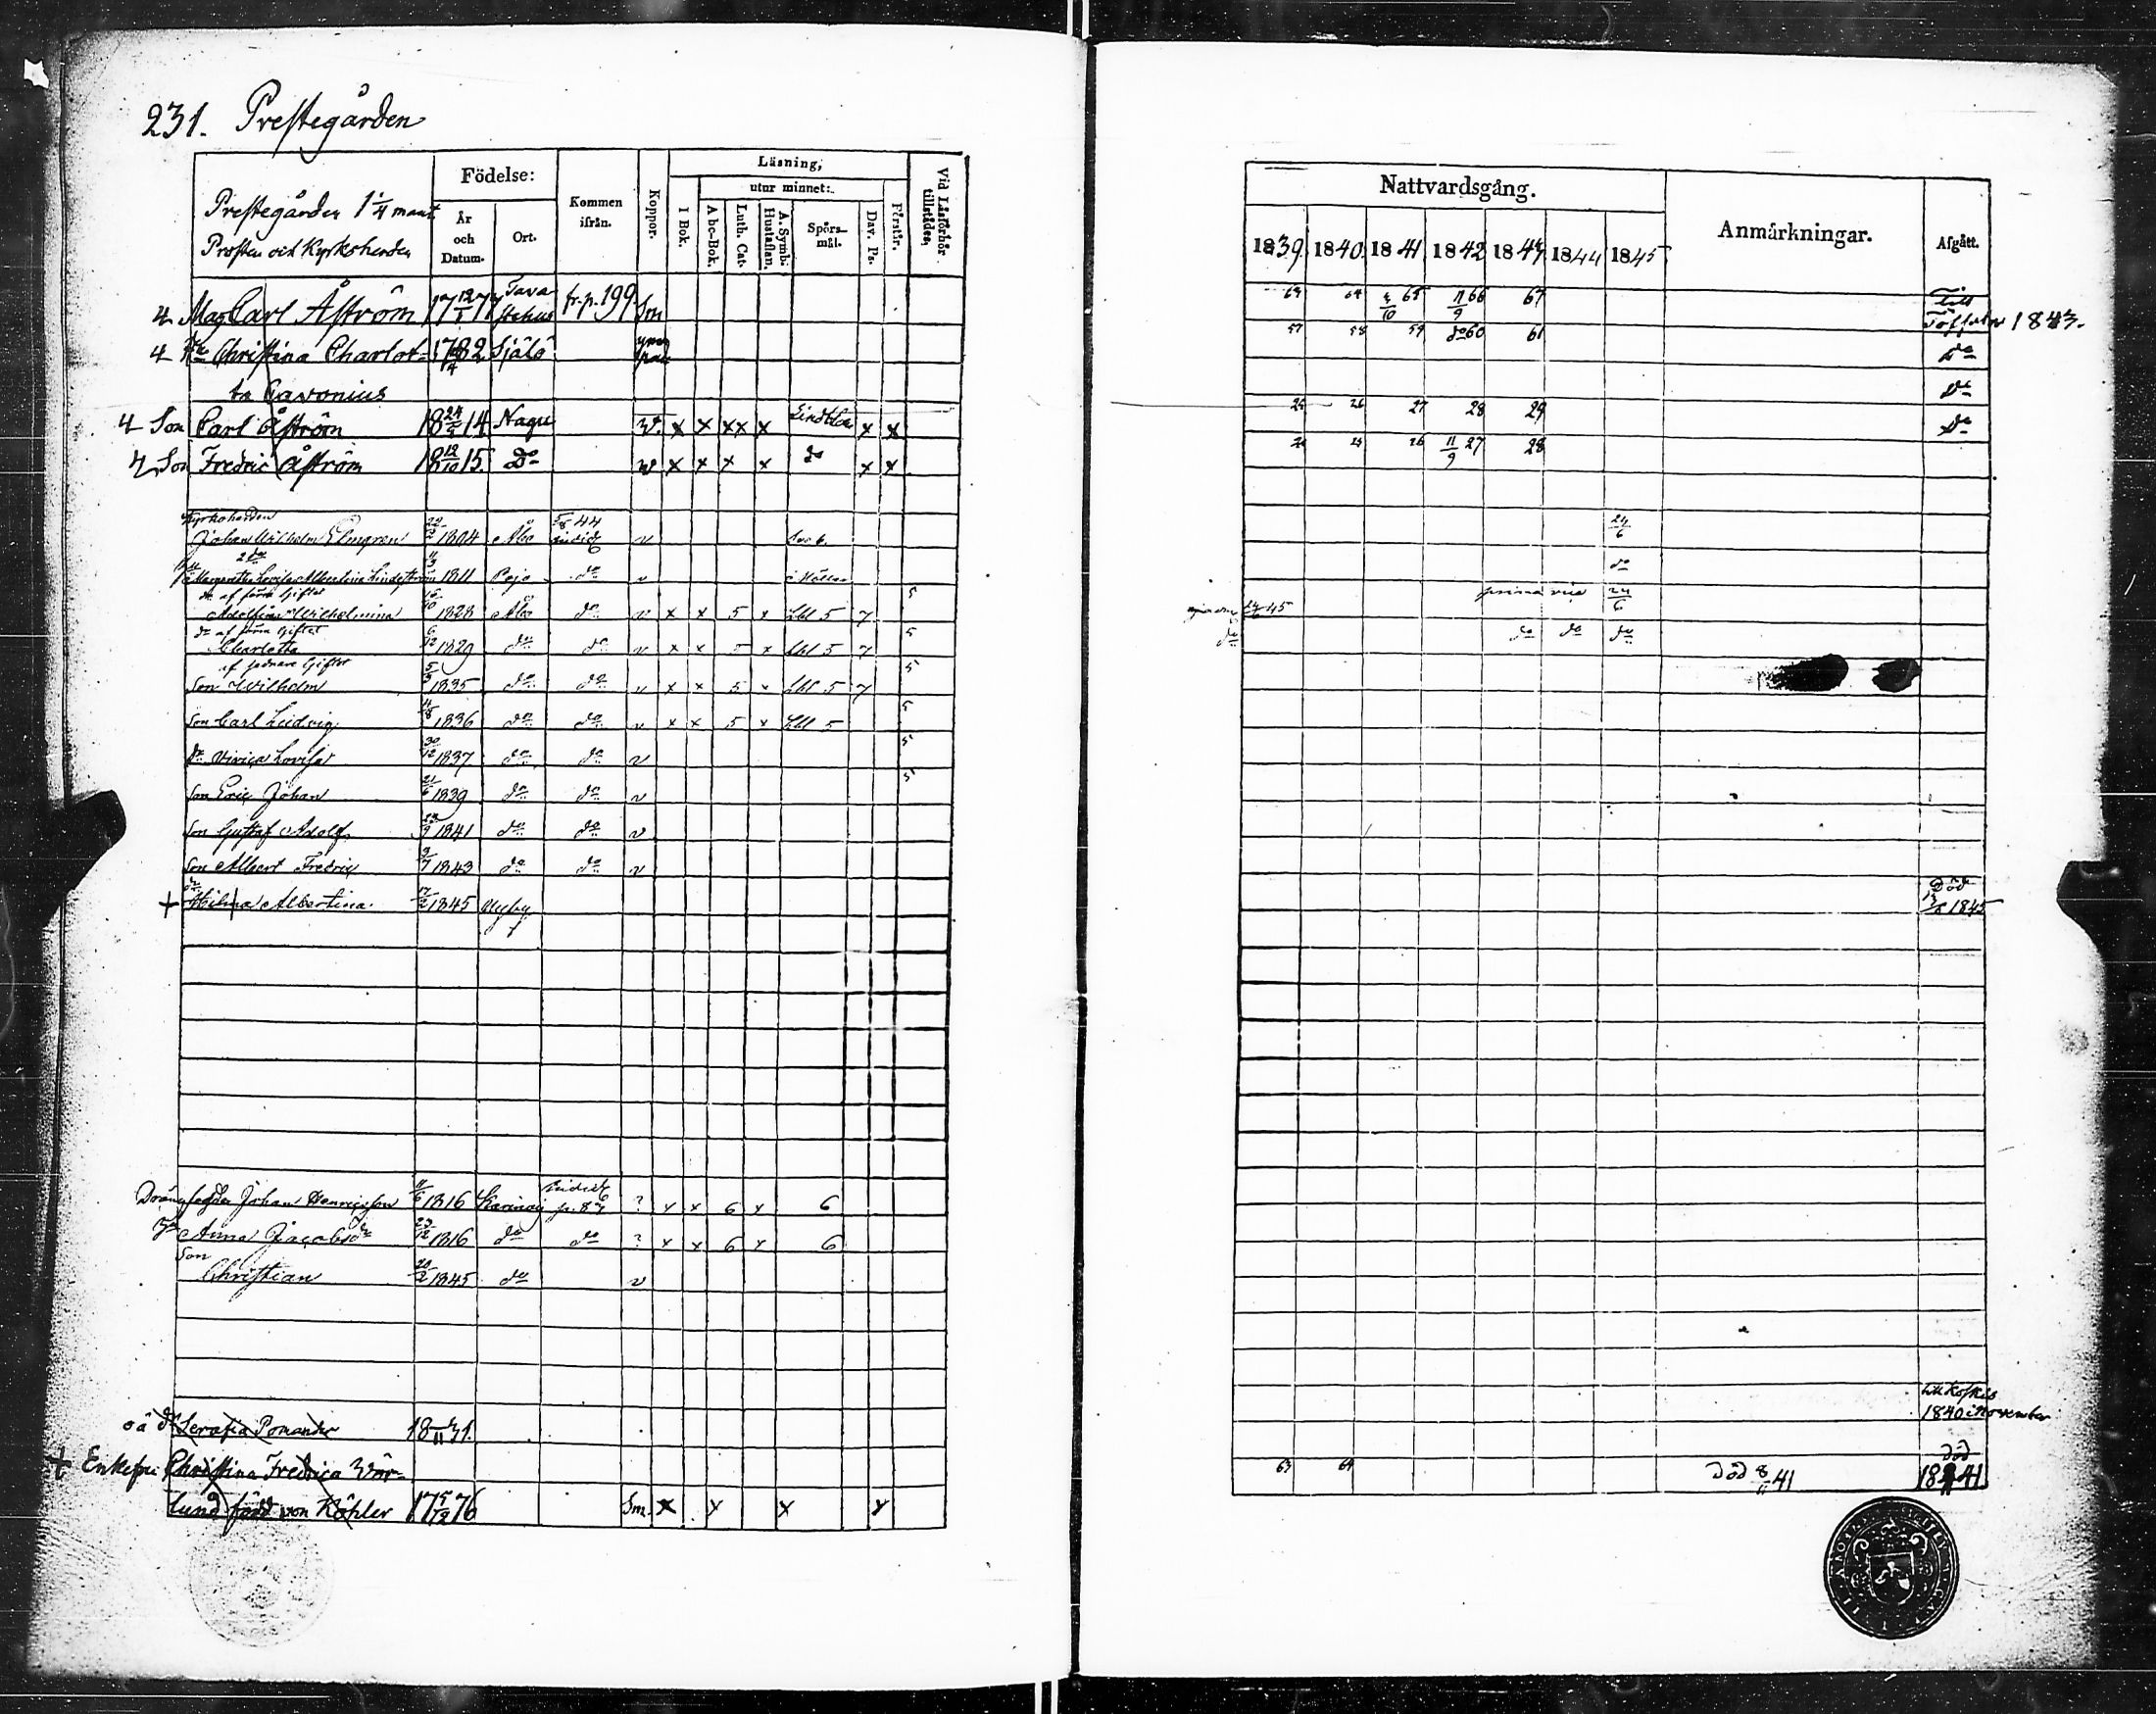 231. Prestegården
Prestegården 1 1/4 mant
Prosten och Kyrkoherden
Födelse:
År och Datum.
Ort.
Kommen ifrån.
Koppor.
Läsning,
I Bok.
utur minnet:
A bc-Bok.
Luth. Cat.
A. Symb. Hustaflan.
Spörs-mål.
Dav. Ps.
Förstår.
Vid Läsförhör tillstädes,
Nattvardsgång.
1839. 1840. 1841 1842 1843 1844 1845
Anmärkningar.
Afgått.
4 Mag Carl Åström 17 12/5 77 Tavastehus fr. p. 199. Sm 64 4/10 65 11/9 66 67 Till 1843.
4 Christina Charlot= 1782 Själö 57 58 59 do 60 61 Do
ta Cavonius Do
4 Son Carl Åström 18 24/5 14 Nagu x x xx x x x 25 26 27 28 29 Do
4 Son Fredric Åström 18 12/10 15. Do x x x x do x x 25 26 11/9 27 28
Kyrkoherden 5/8 44
Johan Wilhelm Elmgren 22/2 1804 Åbo v 24/6
Margaretha Lovisa Albertina Lindeström 1811 Pojo do v do
dr af förra Giftet
Adolfina Wilhelmina 15/10 1828 Åbo do v x x 5 x Lbl 5 7 5 prima vice 24/6
dr af förra Giftet
Charlotta 6/12 1829 do do v x x 5 x Lbl 5 7 5 do do do do
af sednare Giftet
Son Wilhelm 5/3 1835 do do v x x 5 x Lbl 5 7 5
Son Carl Ludvig 1836 do do v x x 5 x Lbl 5 5
dr Viviça Lovisa 30/12 1837 do do v 5
Son Eric Johan 21/6 1839 do do v 5
Son Gustaf Adolf 1841 do do v
Son Albert Fredric 9/7 1843 do do v
+ dr Hilma Albertina 17/2 1845 Nyby Död 1845
Johan Henricsson 11/6 1816 ? x x 6 x 6
Anna Jacobsdr 23/12 1816 do do ? x x 6 x 6
Son
Christian 20/2 1845 do v
oä dr Serafia Pomander 18 4/11 31. 1840 i November
+ Enkefru Christina Fredrica Wör- 63 64 Död 8/11 41 död 1841
lund född von Köhler 17 5/2 76 Sm. x x x x